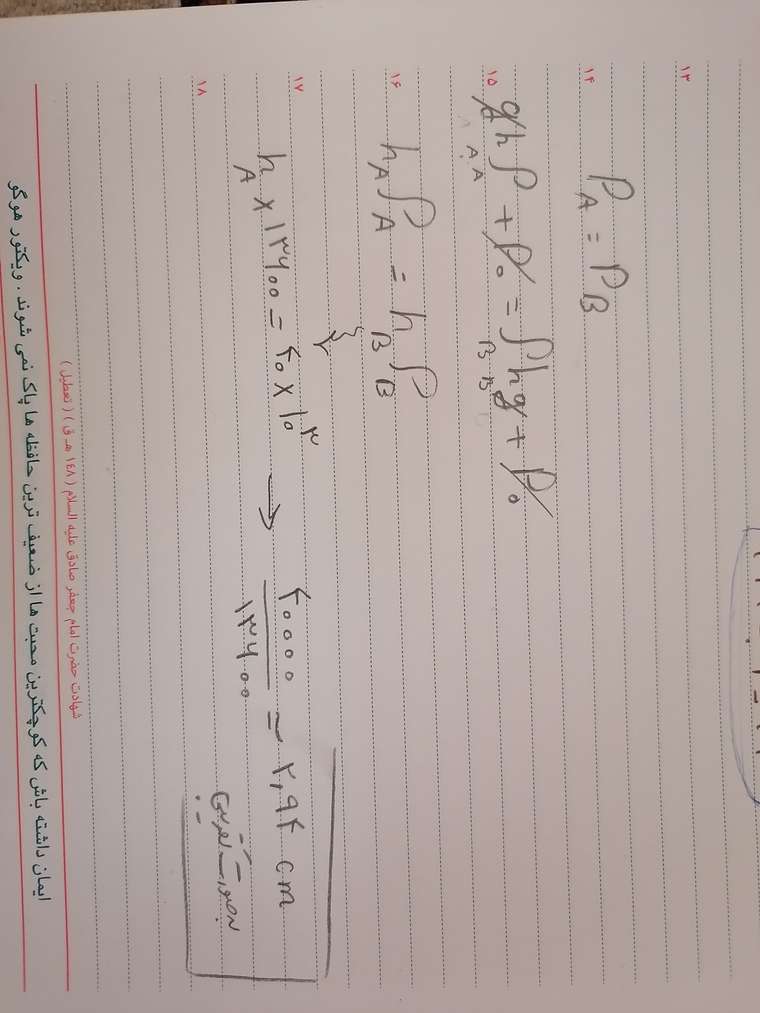 ۱۳
۱۴
P_A = P_B
۱۵
g h_A ρ_A + P₀ = ρ_B h_B g + P₀
۱۶
h_A ρ_A = h_B ρ_B
۱۷
h_A × ۱۳۶۰۰ = ۴۰ × ۱۰^۳ → ۴۰۰۰۰ / ۱۳۶۰۰ = ۲,۹۴ cm
بصورت تقریبی
۱۸
شهادت حضرت امام جعفر صادق علیه السلام ( ۱۴۸ هـ ق ) ( تعطیل )
ایمان داشته باش که کوچکترین محبت ها از ضعیف ترین حافظه ها پاک نمی شوند . ویکتور هوگو